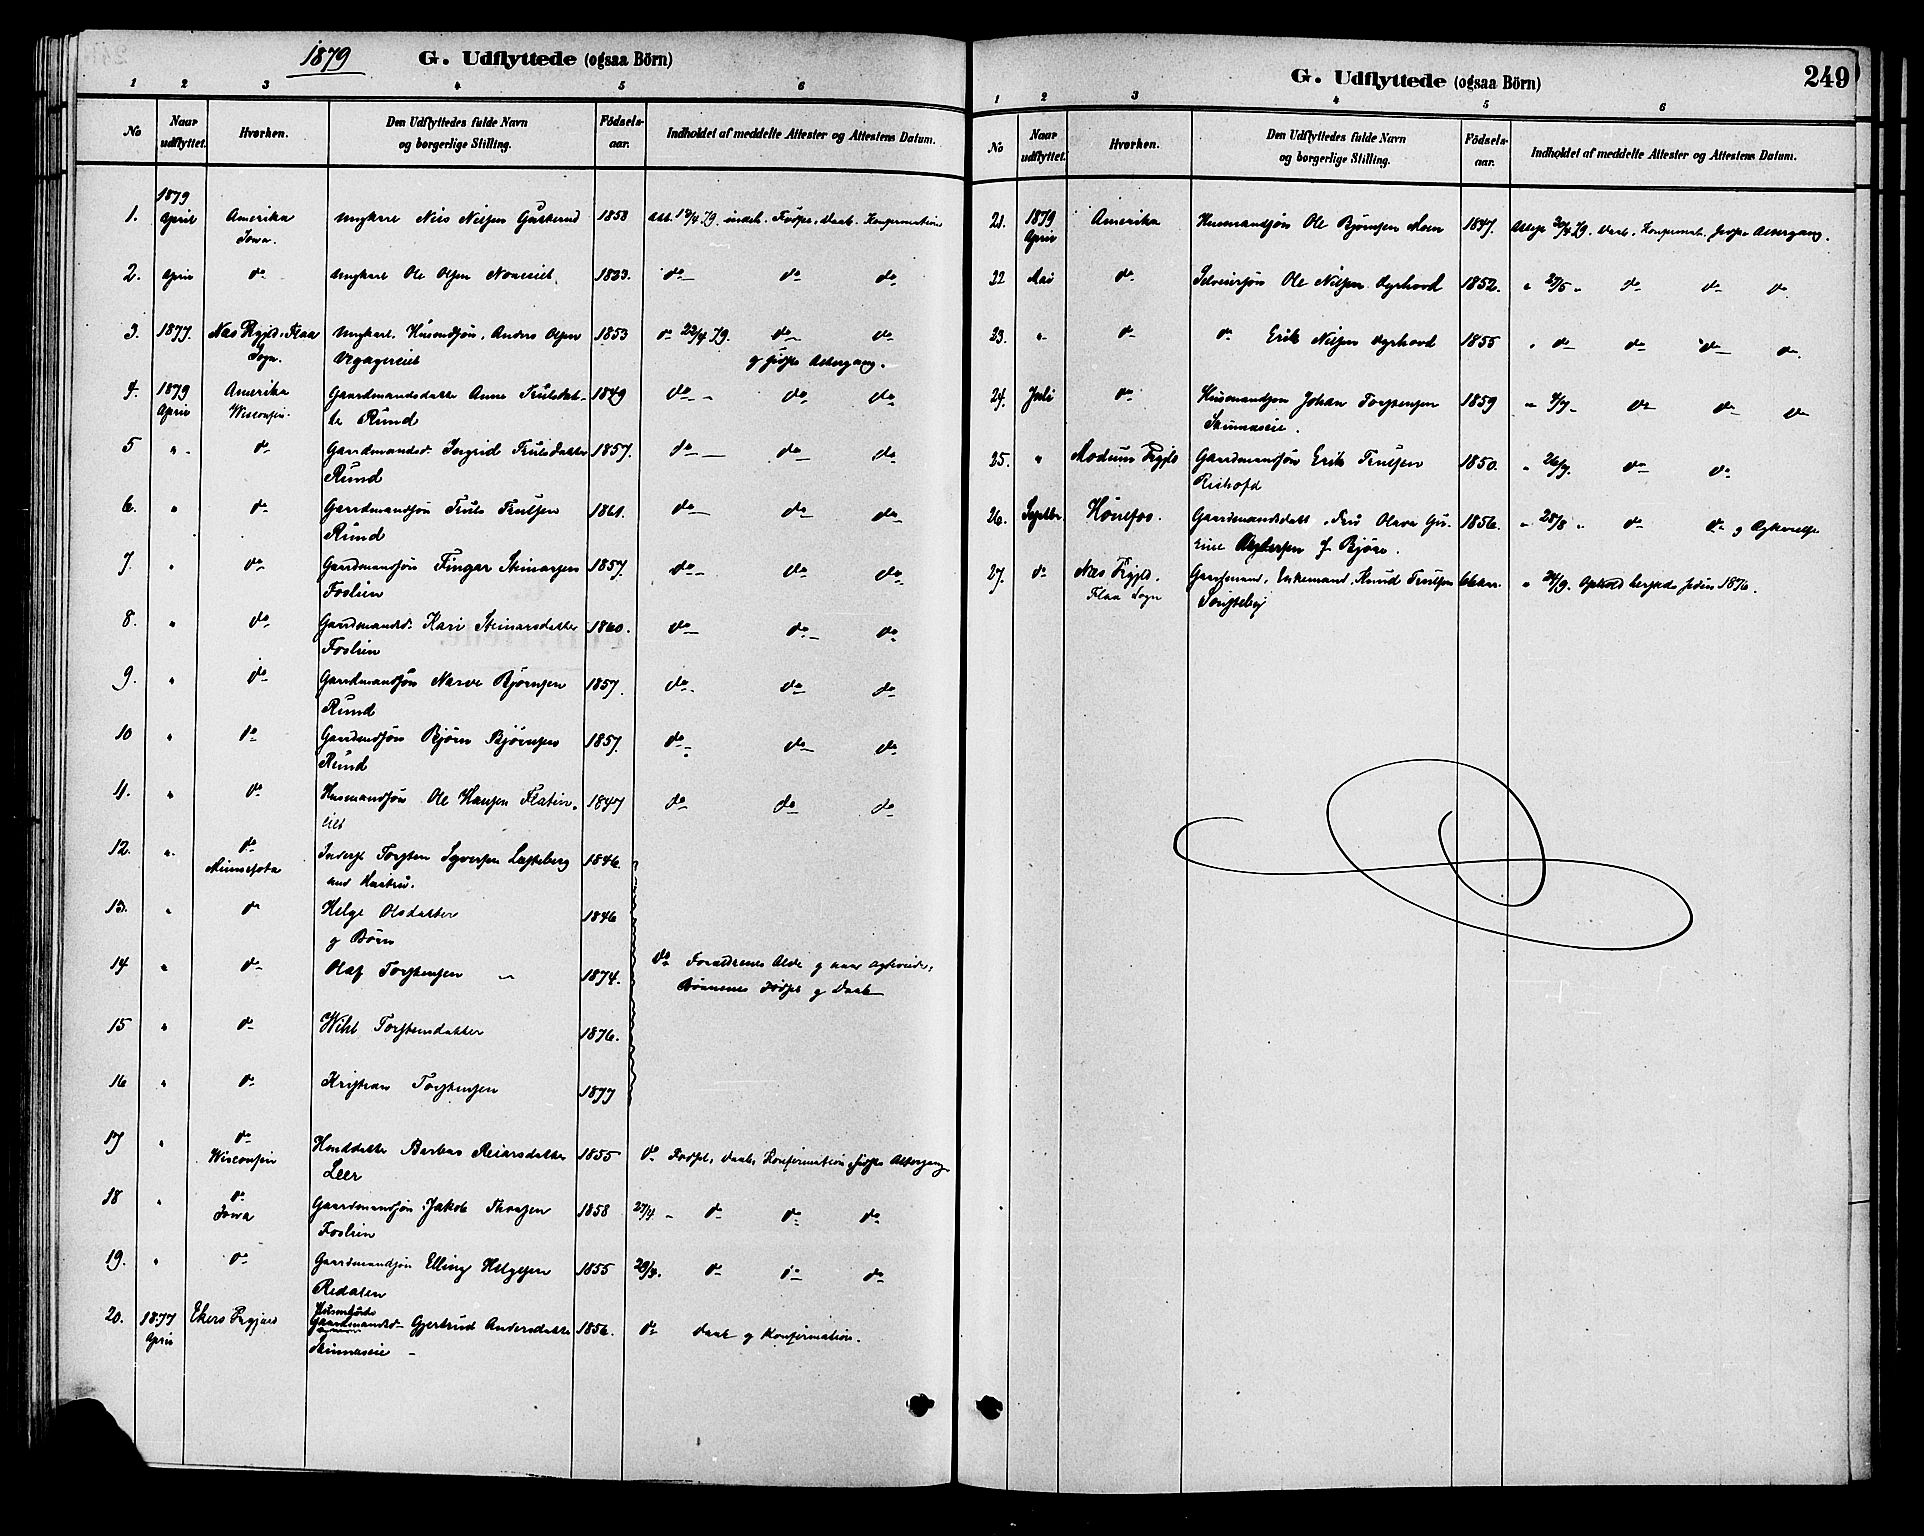 1879
G. Udflyttede (ogsaa Börn)
1 2 3 4 5 6
No
Naar udflyttet.
Hvorhen.
Den Udflyttedes fulde Navn og borgerlige Stilling.
Födsels-aar.
Indholdet af meddelte Attester og Attestens Datum.
1. 1879 April Amerika Iowa. Ungkarl Nils Nilsen 1858 Att. 79. Daab, Konfirmation
2. April do Ungkarl Ole Olsen 1833. do do do
3. 1877. Næs Prgjld. Flaa Sogn. Ungkarl, Anders Olsen 1853 do 22/4 79. do do
g Altergang.
4. 1879 April Amerika Wisconsin. Gaardmandsdatter Anne Trulsdat-
ter Rund 1849 do do do
5 " do Gaardmandsd. Ingrid Trulsdatter
Rund 1857. do do do
6. " do Gaardmandsøn Truls Trulsen
Rund 1861. do do do
7. " do Gaardmandsøn Fingar Steinarsen
Foslien 1857. do do do
8. " do Gaardmandsd. Kari Steinarsdatter
Foslien 1860. do do do
9. " do Gaardmandsøn Narve Bjørnsen
Rund 1857. do do do
10 " do Gaardmdsøn Bjørn Bjørnsen
Rund 1857. do do do
11. " do Husmandsøn Ole Hansen Flatin-
eiet 1847 do do do
12. " do Minnesota Inderst Torsten Syversen
med Hustru. 1846.
13. " do Helge Olsdatter
g Børn 1846
14 " do Olaf Torstensen 1874. do Forældrenes Alder g
Børnenes Fødsel g Daab
15 " do Torstensdatter 1876.
16 " do Kristian Torstensen 1877
17 " do Wisconsin Barbra Reiarsdatter
Leer 1855 do Fødsel, Daab, Konfirmation, Altergang
18 " do Iowa Gaardmandsøn Jakob
Foslien 1858 27/4 do do do
19. " do Gaardmandsøn Elling Helgesen
Redalen 1855 do do do
20. 1877 April Ekers Prgjæld Gaardmandsd. Gjertrud Andersdatter
Skinnaseie 1856. do Daab g Konfirmation.
G. Udflyttede (ogsaa Börn)
249
1 2 3 4 5 6
No
Naar udflyttet.
Hvorhen.
Den Udflyttedes fulde Navn og borgerlige Stilling.
Födsels-aar.
Indholdet af meddelte Attester og Attestens Datum.
21. 1879 April Amerika Husmandsøn Ole Bjørnsen Moen 1847. 79. Daab, Konfirmat. Altergang.
22 Mai do Selveiersøn Ole Nilsen 1852. " 27/5 " do do do
23. " do do Erik Nilsen 1855 " do do do do
24. Juli do Husmandsøn Johan Torstensen
Skinnaseie. 1859 do do do
25. " Modums Prgjld Gaardmandsøn Erik Trulsen
1850. " 26/7. do do
26. Septbr. Hønefos. Gaardmandsdatt. Fru Olava Gu-
rine f. Bjøre. 1856. " 28/8 " do do g
27. do Næs Prgjld. Flaa Sogn Gaardmand, Enkemand, Knud Trulsen
66 aar. Ophold siden 1876.